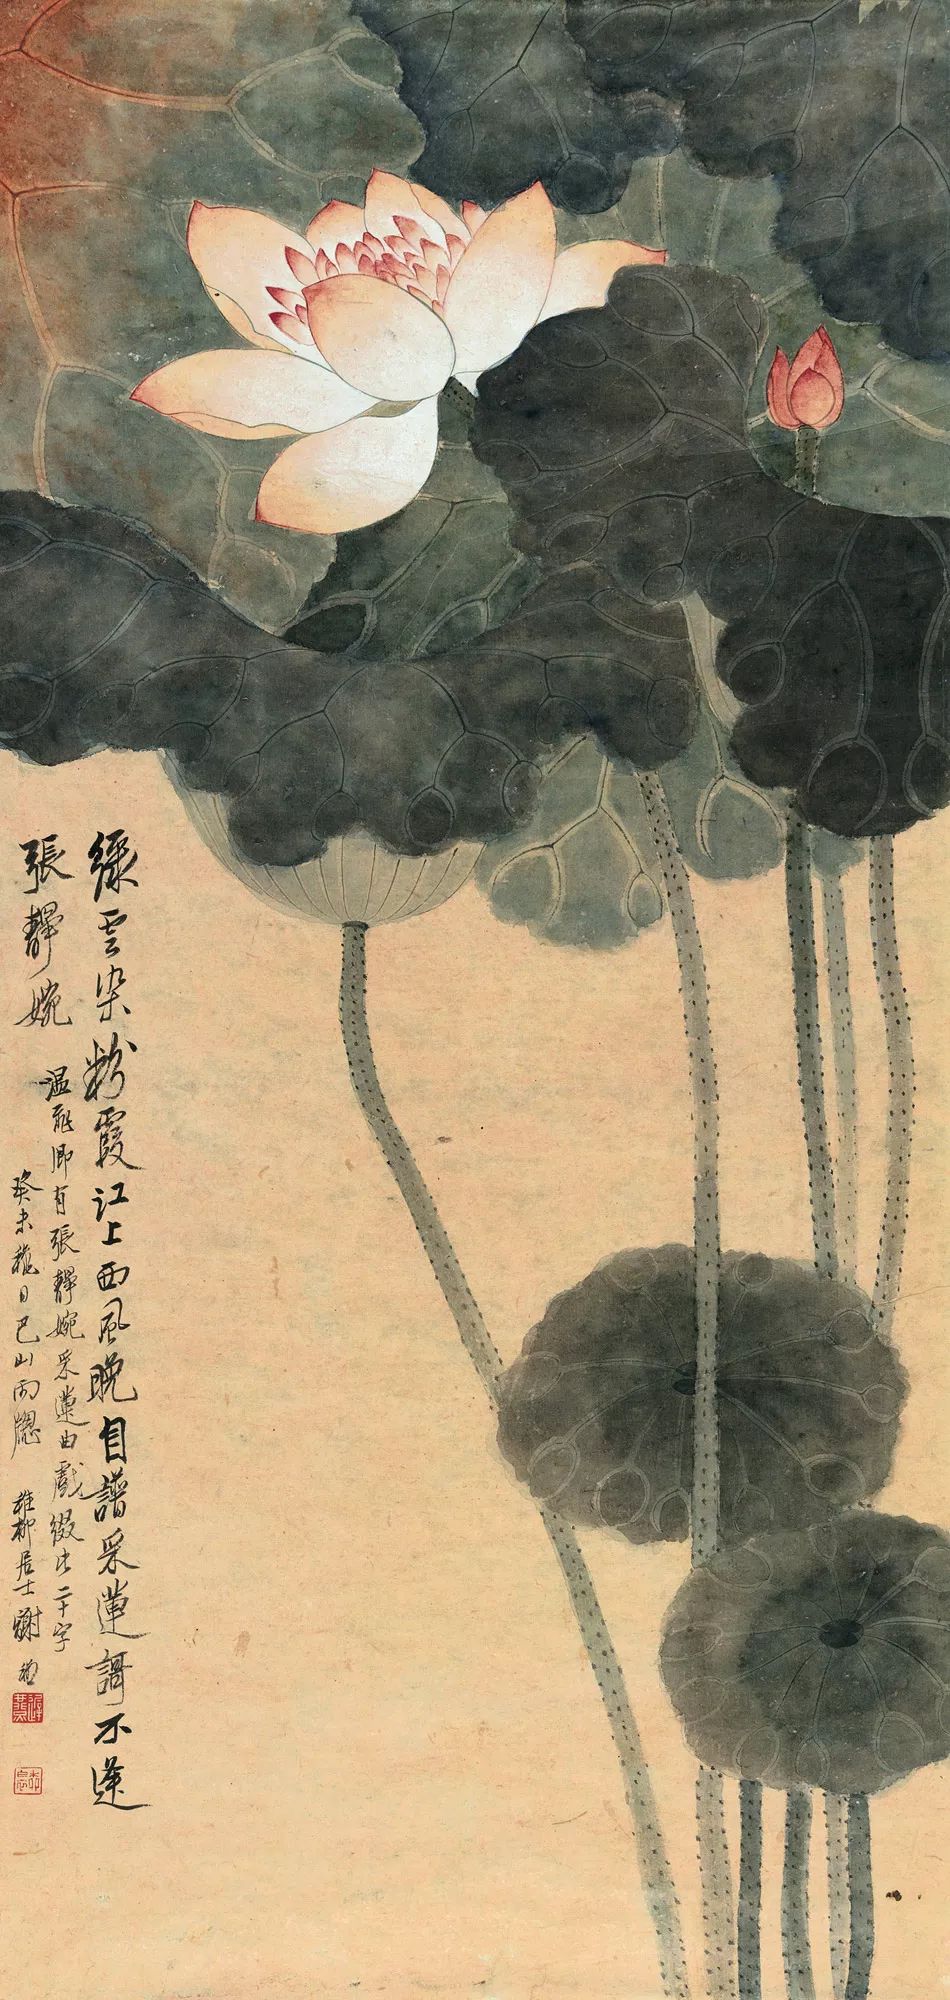 綠雲染粉霞江上西風晚自譜采蓮謌不逢
張靜婉
溫飛卿有張靜婉采蓮曲戲綴此二十字
癸未龝日巴山雨牕
稚柳居士謝稚